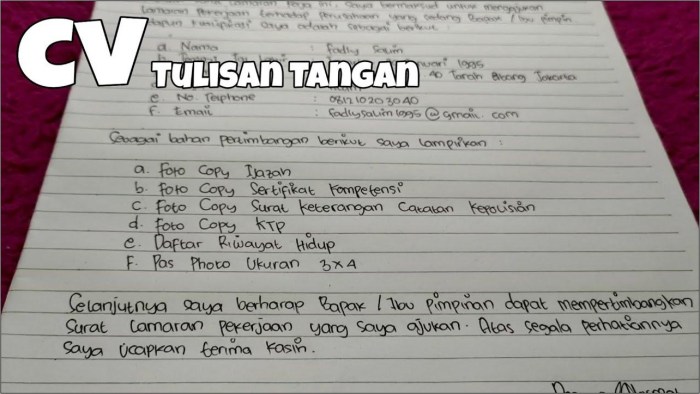 CV TULISAN TANGAN
lamaran pekerjaan terhadap perusahaan yang sedang Bapak / Ibu pimpin
a. Nama : Fadly Salim
1995
40 Tanah Abang Jakarta
e. No. Telphone : 081710203040
F. Email : Fadlysalim1995@gmail.com
Sebagai bahan pertimbangan berikut saya lampirkan :
a. Foto Copy Ijazah
b. Foto Copy Sertifikat Kompetensi
c. Foto Copy Surat Keterangan Catatan Kepolisian
d. Foto Copy KTP
e. Daftar Riwayat Hidup
F. Pas Photo Ukuran 3x4
Selanjutnya saya berharap Bapak / Ibu Pimpinan dapat mempertimbangkan
Surat Lamaran Pekerjaan yang saya ajukan. Atas segala perhatiannya
saya ucapkan terima kasih.